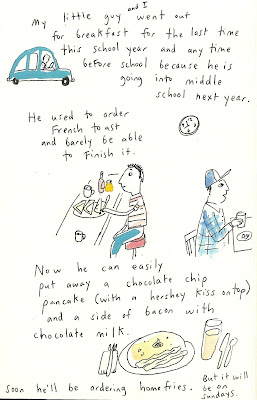 and I
My little guy went out
for breakfast for the last time
this school year and any time
before school because he is
going into middle
school next year.
He used to order
French toast
and barely be able
to finish it.
Now he can easily
put away a chocolate chip
pancake (with a hershey kiss on top)
and a side of bacon with
chocolate milk.
soon he'll be ordering homefries.
But it will
be on
sundays.